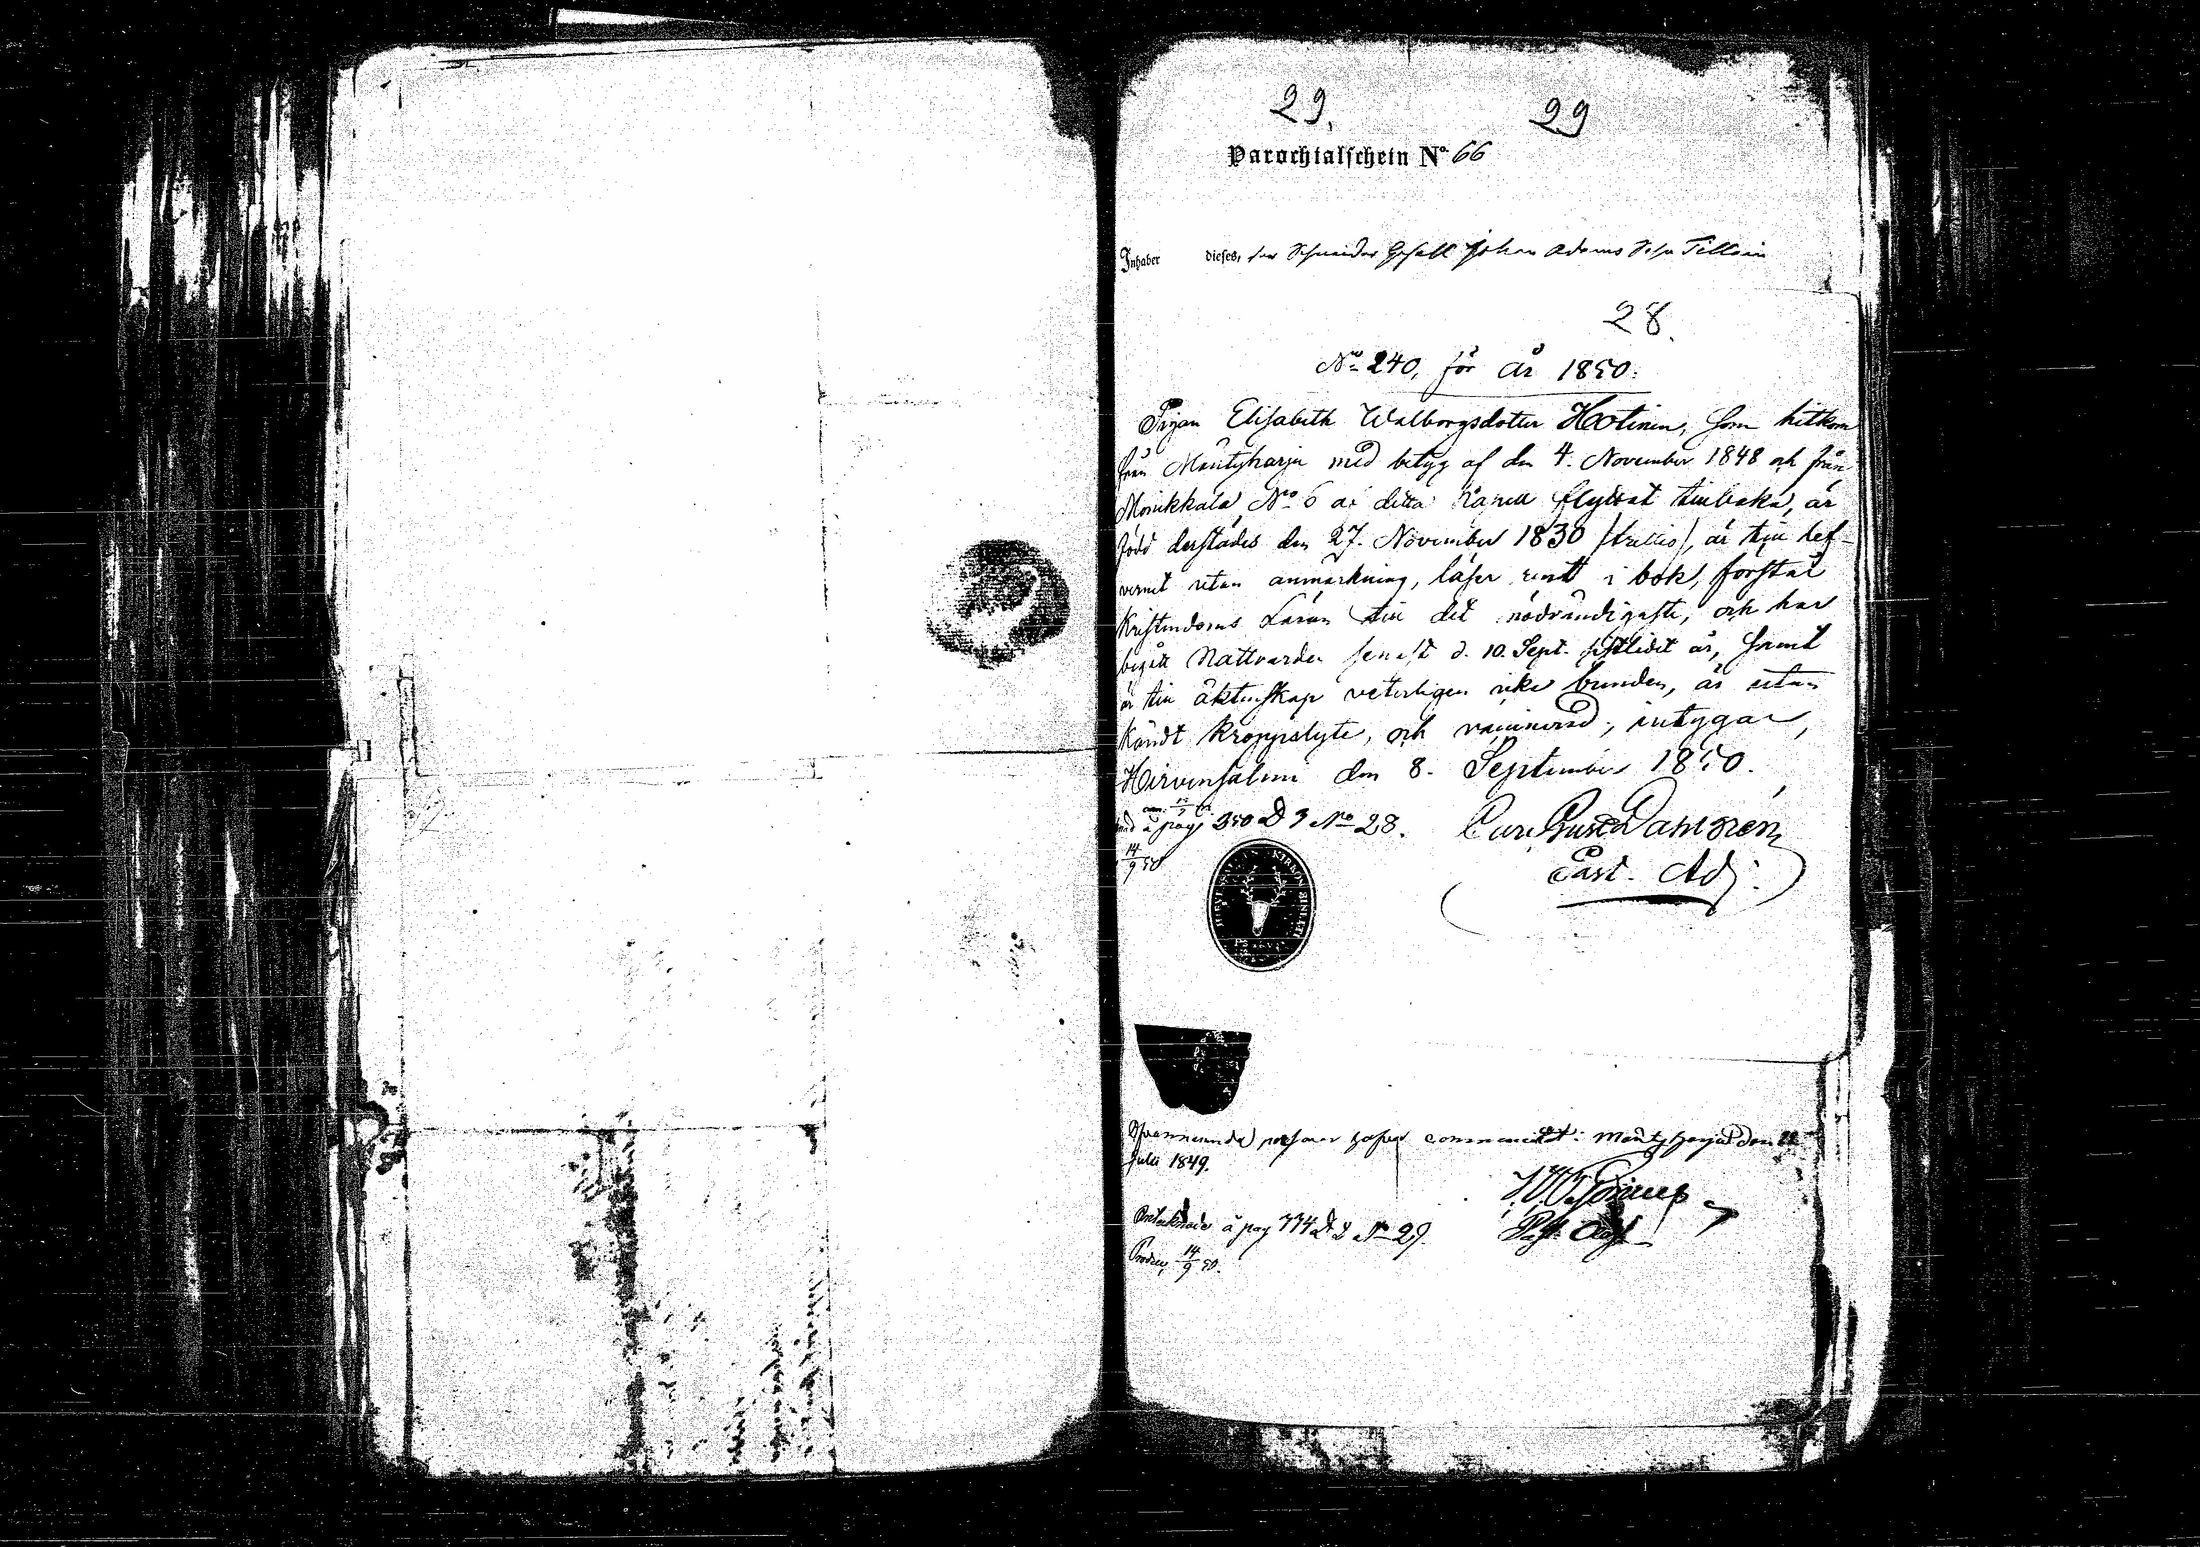 29.
29
Parochialschein No 66
Inhaber dieses, der Schneider Gesell Johan Adams Sohn Tillain
28.
No 240, för år 1850.
Pigan Elisabeth Walborgsdotter Hotinen, som hitkom
från Mäntyharju med betyg af den 4. November 1848 och från
Monikkala No 6 af detta Kapell flyttat tillbaka, är
född derstädes den 27. November 1830 /trettio/, är till lef-
vernet utan anmärkning, läser rent i bok, förstår
Kristendoms Läran till det nödvändigaste, och har
begått Nattvarden senast d. 10. Sept. sistlidet år, samt
är till äktenskap veterligen icke bunden, är utan
kändt kroppslyte, och vaccinerad, intygar,
Hirvensalmi den 8. September 1850.
å pag 350 No 28.
14/9 50
Carl Gust Dahlgren
Past. Adj.
KIRKON SINETTI
Ofvannämnda person hafva communicerat: Mäntyharju den 22
Julii 1849.
Past. Adj.
Antecknade å pag 774 No 29.
14/9 50.